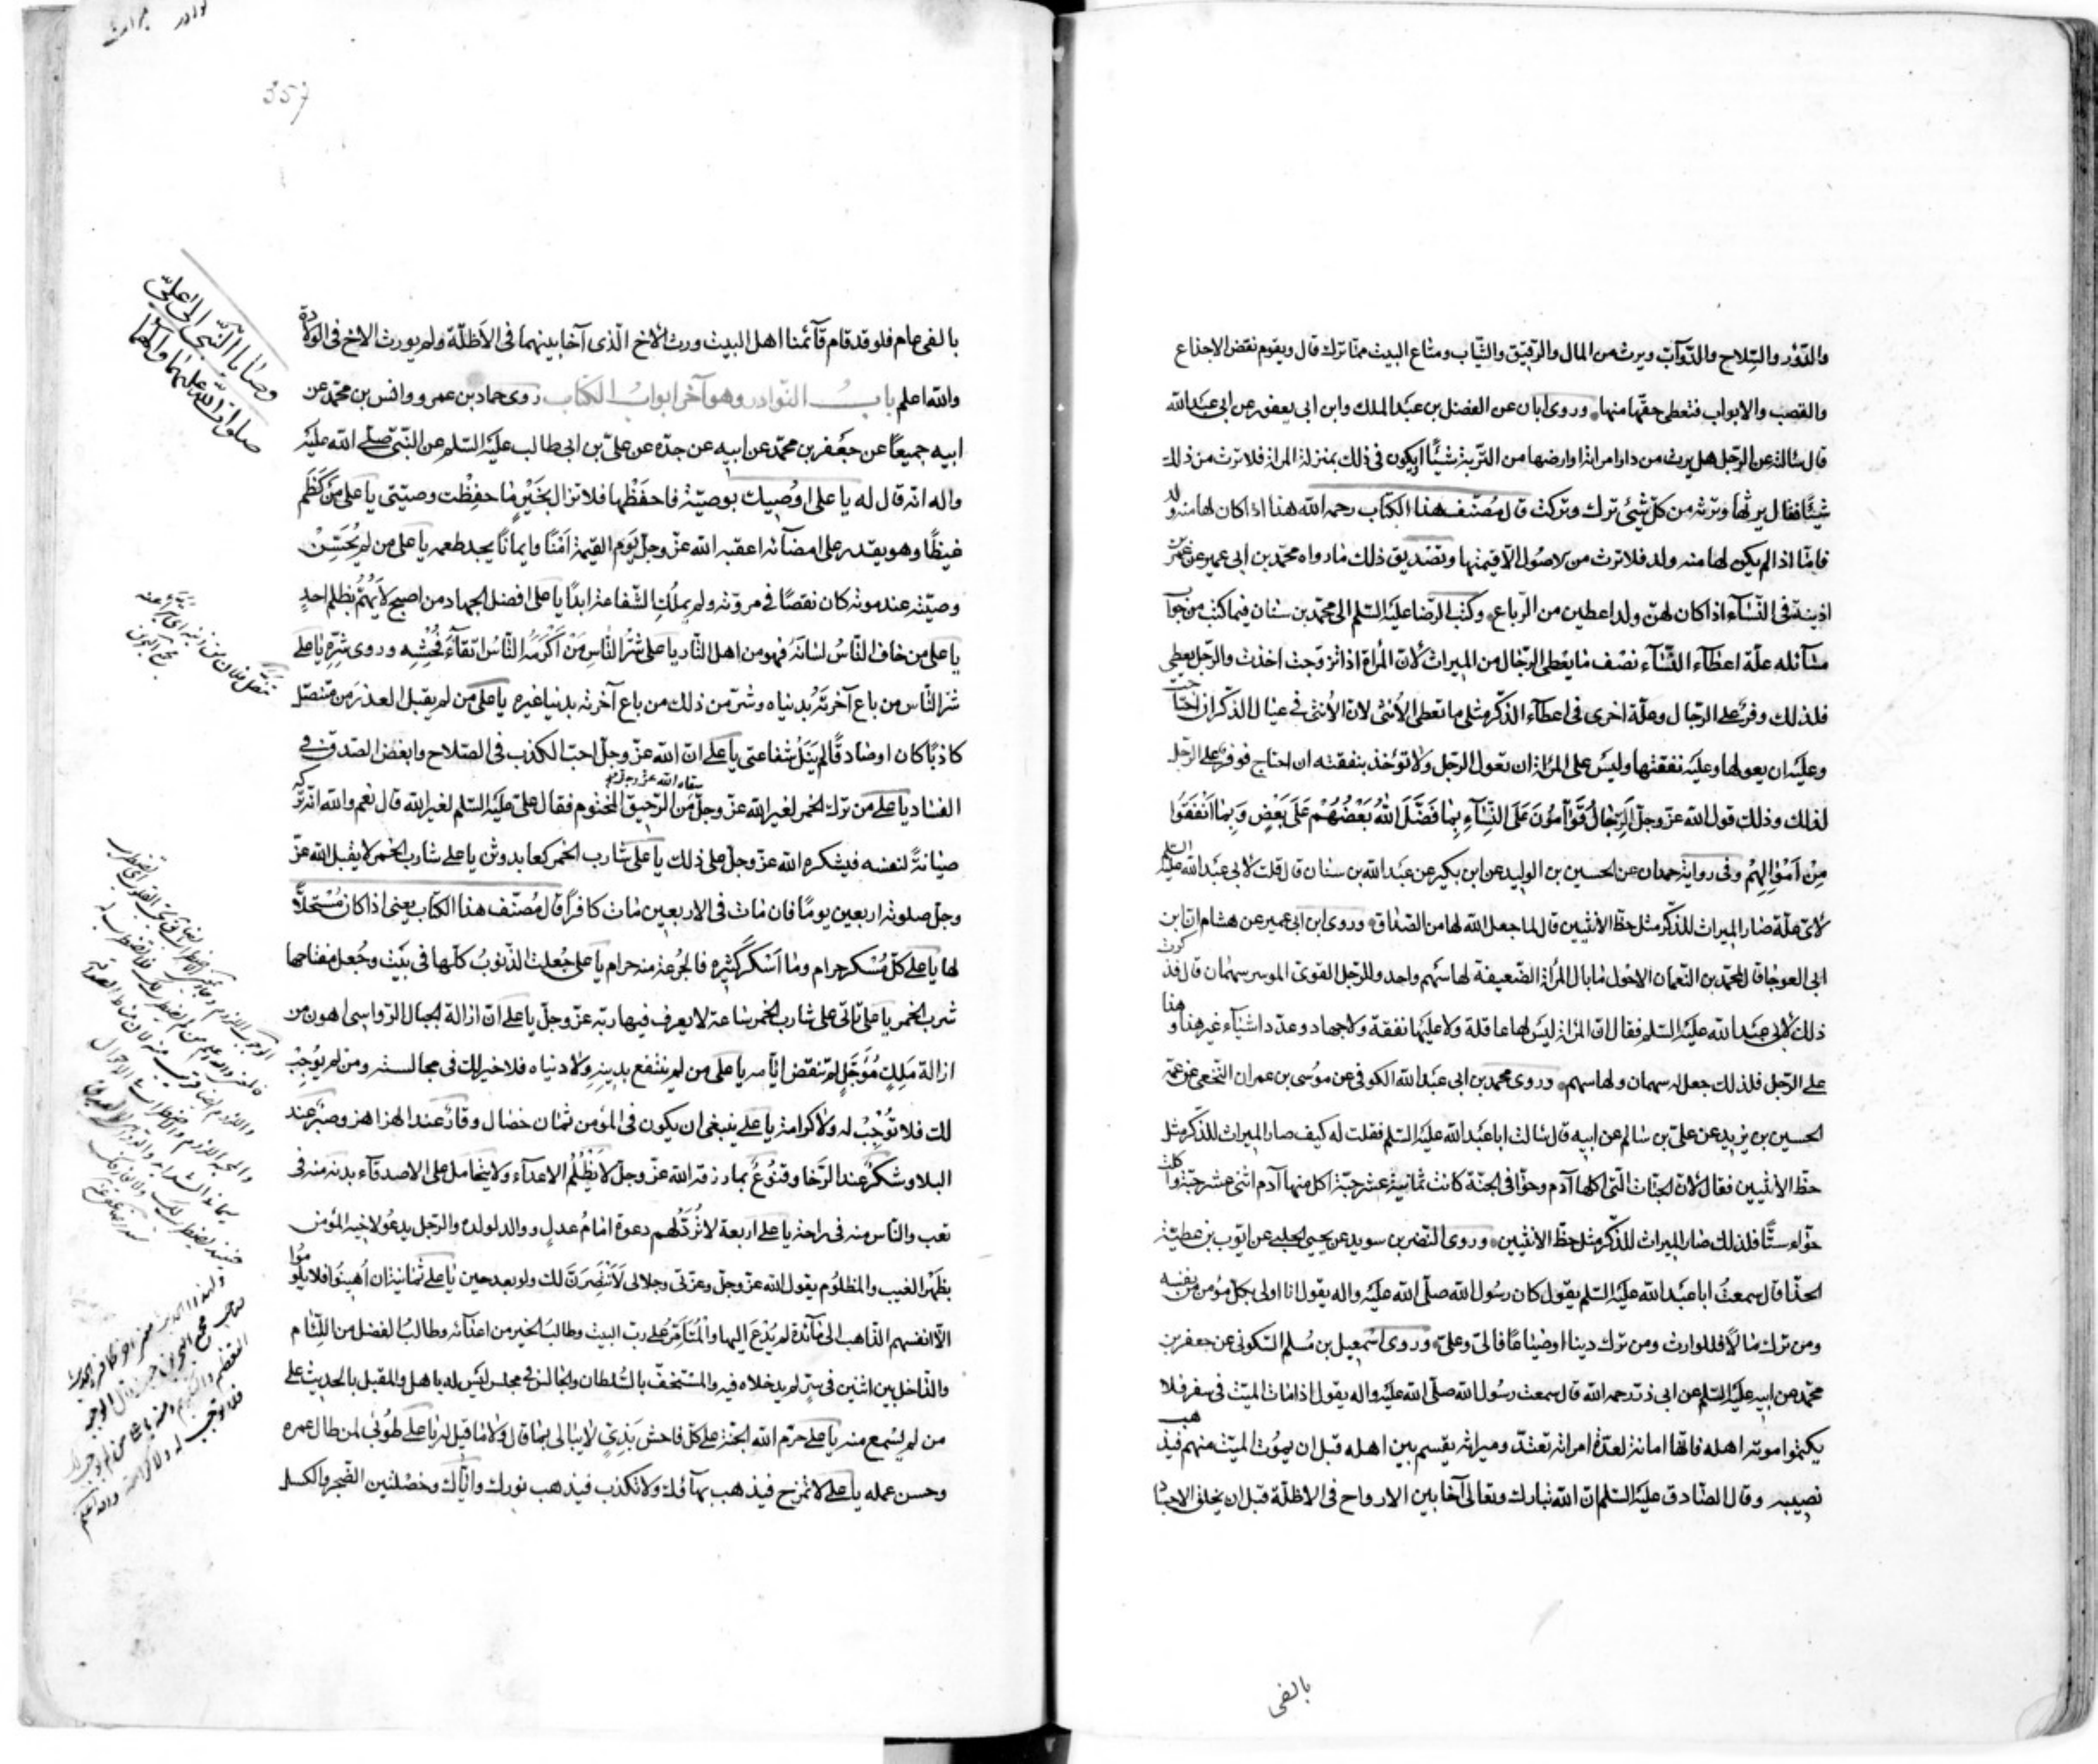 والدّور والسّلاح والدّوآبّ ويرث من المال والرقيق والثّياب ومتاع البيت ممّا ترك قال ويقوم نقض الاجذاع
والقصب والابواب فتعطى حقّها منها وروى ابان عن الفضل بن عبد الملك وابن ابى يعفور عن ابى عبد الله
قال سالته عن الرّجل هل يرث من دار امراته او ارضها من التّربة شيئًا او يكون فى ذلك بمنزلة المراة فلا ترث من ذلك
شيئًا فقال يرثها وترثه من كلّ شيئ ترك وتركت قال مُصنّف هذا الكتاب رحمه الله هذا اذا كان لها منه ولد
فامّا اذا لم يكن لها منه ولد فلا ترث من الاصُول الّا قيمتها وتصْديق ذلك ما رواه محمّد بن ابى عمير عن عمر بن
اذينة فى النّسآء اذا كان لهنّ ولد اعطين من الرّباع وكتب الرّضا عليه السّلم الى محمّد بن سنان فيما كتب من جوآب
مسآئله علّة اعطآء النّسآء نصْف ما يعْطى الرّجال من الميراث لانّ المْراة اذا تزوّجت اخذت والرّجل يعطى
فلذلك وفّر على الرّجال وعلّة اخرى فى اعطآء الذّكر مثلى ما تعطى الاُنثى لانّ الاُنثى فى عيال الذكر ان احتاجت
وعليْه ان يعولها وعليْه نفقتها وليْس على المرْاة ان تعول الرّجل ولا توُخذ بنفقته ان احتاج فوفّر على الرّجل
لذلك وذلك قول الله عزّ وجلّ الَرِّجٰالُ قَوّآمُونَ عَلَى النِّسٰآءِ بِمٰا فَضَّلَ اللهُ بَعْضُهُمْ عَلَى بَعْضٍ وَبِمٰا اَنْفَقُوا
مِنْ اَمْوٰالِهِمْ وفى رواية حمدان عن الحسين بن الوليد عن ابن بكير عن عبد الله بن سنان قال قلت لابى عبد الله عليه السّلم
لاىّ علّة صار الميراث للذّكر مثل حظّ الانثيين قال لما جعل الله لها من الصّداق وروى ابن ابى عمير عن هشام انّ ابن
ابى العوجا قال لمحمّد بن النّعمان الاحْول ما بال المرْاة الضّعيفة لها سَهم واحد وللرّجل القوىّ الموسر سهمان قال فذكرت
ذلك لابى عبد الله عليه السّلم فقال انّ المرْاة ليْس لها عاقلة ولا عليْها نفقة ولا جهاد وعدّد اشيآء غير هذا وهذا
على الرّجل فلذلك جعل له سهمان ولها سهم وروى محمد بن ابى عبْد الله الكوفى عن موُسى بن عمران النّخعى عن عمّه
الحسين بن يزيد عن علىّ بن سالم عن ابيه قال سالت ابا عبْد الله عليْه السّلم فقلت له كيف صار الميراث للذّكر مثل
حظّ الانثيين فقال لانّ الحبّات الّتى اكلها آدم وحوّا فى الجنّة كانت ثمانية عشر حبّة اكل منها آدم اثنى عشر حبّة واكلت
حوّاء ستًّا فلذلك صار الميراث للذّكر مثل حظّ الانثيين وروى النّضر بن سويد عن يحيى الحلبى عن ايّوب بن عطيّة
الحذّا قال سمعتُ ابا عبْد الله عليْه السّلم يقول كان رسُول الله صلّى الله عليْه واله يقول انا اولى بكلّ مؤمن من نفسه
ومن ترك مالًا فللوارث ومن ترك دينا او ضياعًا فالىّ وعلىّ وروى اسْمعيل بن مُسلم السّكونى عن جعفر بن
محمّد عن ابيه عليْه السّلم عن ابى ذرّ رحمه الله قال سمعت رسُول الله صلّى الله عليْه واله يقول اذا مات الميّت فى سفر فلا
يكتموا موته اهله فانّها امانة لعدّة امراته تعتدّ وميراثه يقسم بين اهله قبل ان يموُت الميّت منهم فيذهب
نصيبه وقال الصّادق عليْه السّلم انّ الله تبارك وتعالى آخا بين الارواح فى الاظلّة قبل ان يخلق الاجساد
بالفى
357
بالفى عام فلو قد قام قآئمنا اهل البيت ورث الاخ الّذى آخا بينهما فى الاَظلّة ولم يورث الاخ فى الولادة
والله اعلم بابُ النّوادر وهو آخر ابوابُ الكتاب روى حماد بن عمرو وانس بن محمّد عن
ابيه جميعًا عن جعْفر بن محمّد عن ابيه عن جدّه عن علىّ بن ابى طالب عليْه السّلم عن النّبىّ صلّى الله عليْه
واله انّه قال له يا على اوُصيك بوصيّة فاحفَظْها فلا تزال بخَيْرٍ ما حفِظْت وصيّتى يا على مَنْ كَظَمَ
غيظًا وهو يقدر على امضآئه اعقبه الله عزّ وجلّ يَوم القيمة اَمْنًا وايمانًا يجد طعمه يا على من لم يُحْسِنْ
وصيّته عند موته كان نقصًا فى مروّته ولم يملُك الشّفاعة ابدًا يا على افضل الجهاد من اصبح لا يَهُمُّ بظلم احدٍ
يا على من خاف النّاسُ لسَانَهُ فهو من اهل النّار يا على شَرُّ النّٰاسِ مَنْ اَكْرَمَهُ النّٰاسُ اتّقآءَ فُحْشِه وروى شرّهِ يا على
شرّ النّاس من باع آخرتَهُ بُدنياه وشرّ من ذلك من باع آخرته بدنيا غيره يا على من لم يقبل العذر من متنصّل
كاذبًا كان او صادقًا لم يَنَلْ شفاعتى يا على انّ الله عزّ وجلّ احبّ الكذب فى الصّلاح وابغض الصّدق فى
الفساد يا على من ترك الخمر لغير الله عزّ وجلّ سقاه الله عزّ وجلّ من الرّحيق المختوم فقال علىّ عليْه السّلم لغير الله قال نعم والله انّه تركه
صيانةً لنفسه فيشكره الله عزّ وجلّ على ذلك يا على شارب الخمر كعابد وثن يا على شارب الخمر لا يقبل الله عزّ
وجلّ صلوته اربعين يومًا فان مات فى الاربعين مات كافرًا قال مُصنّف هذا الكتاب يعنى اذا كان مُسْتحلًّا
لها يا على كلّ مُسْكر حرام وما اَسْكَرَ كَثيرُه فالجُرْعة منه حرام يا على جُعلت الذّنوبُ كلّها فى بَيْت وجُعل مفتاحها
شرب الخمر يا علىّ تاتى على شارب الخمر ساعة لا يعرف فيها ربّه عزّ وجلّ يا على انّ ازالة الجبال الرّواسى اهون من
ازالة مَلِكٍ مُؤَجَّلٍ لم تنقض ايّامه يا على من لم ينتفع بدينهِ ولا دنياه فلا خير لك فى مجالسته ومن لم يوُجِبْ
لك فلا توُجبْ له ولا كرامة يا على ينبغى ان يكون فى المؤمن ثمان خصال وقار عند الهزاهز وصبْر عند
البلا وشكر عند الرّخا وقنُوُع بما رزقه الله عزّ وجلّ لا يَظْلُم الاعدآء ولا يتحامل على الاصدقآء بدنه منه فى
تعب والنّاس منه فى راحة يا على اربعة لا تُرَدّ لهم دعوة امامُ عدل ووالد لولده والرّجل يدعُو لاخيه المؤمن
بظَهْر الغيب والمظلُوم يقول الله عزّ وجلّ وعزّتى وجلالى لَاَنْتَصِرَنَّ لك ولو بعد حين يا على ثمانية ان اُهينُوا فلا يلوُموُا
الّا انفسهم الذّاهب الى مآئدة لم يُدْعَ اليها والْمُتاَمِّرُ على ربّ البيت وطالبُ الخير من اعدآئه وطالبُ الفضل من اللّئام
والدّاخل بين اثنين فى سرّ لم يدخلاه فيه والمستخفّ بالسُّلطان والجالس فى مجلس ليْس له باهل والمقبل بالحديث على
من لم يسْمع منه يا على حرّم الله الجنّة على كلّ فاحش بَذِىٍّ لا يبالى بما قال ولا ما قيل له يا على طُوُبٰى لمن طال عمره
وحسن عمله يا على لا تمْزح فيذهب بهآؤك ولا تكذب فيذهب نورك وايّاك وخصْلتين الضّجر والكسل
وصٰايا النّبى الى علىّ
صلوات الله عليهما وآلهما